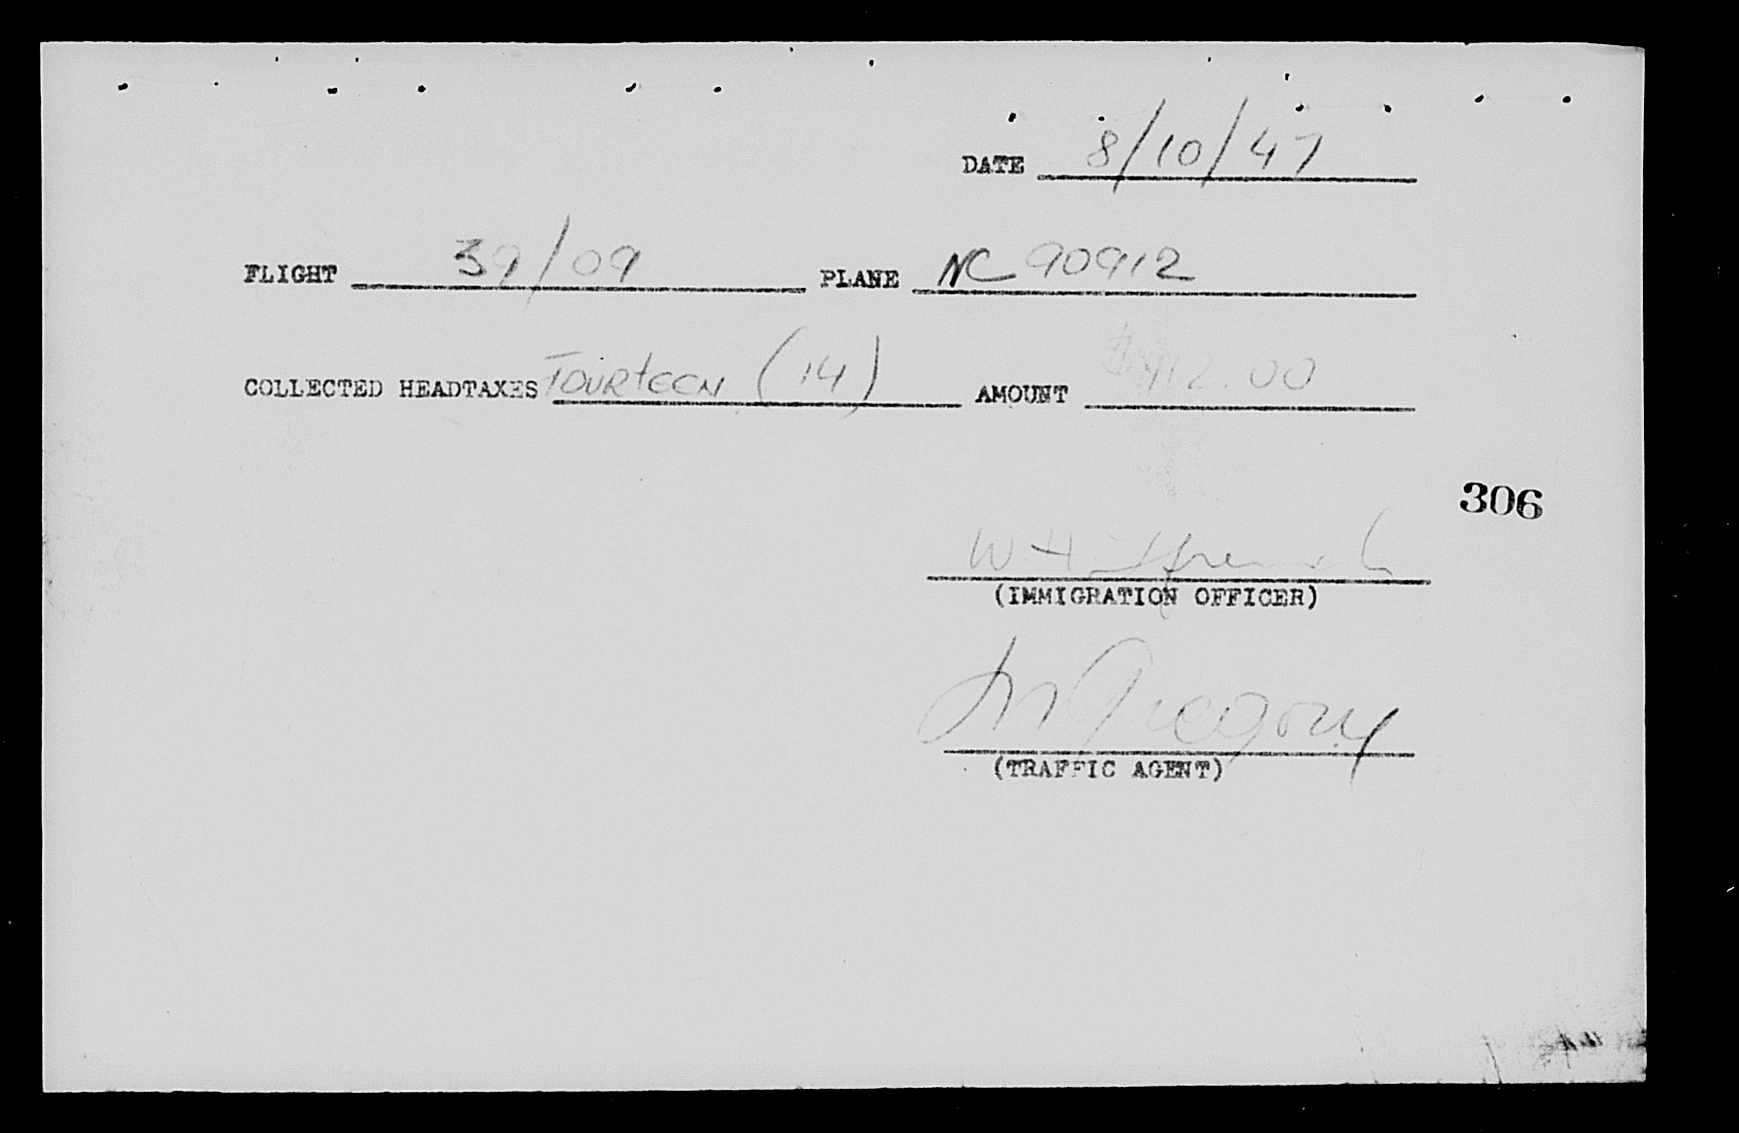 DATE 8/10/47
FLIGHT 39/09 PLANE NC 90912
COLLECTED HEADTAXES FOURTEEN (14) AMOUNT $112.00
306
W H
(IMMIGRATION OFFICER)
M Gregory
(TRAFFIC AGENT)